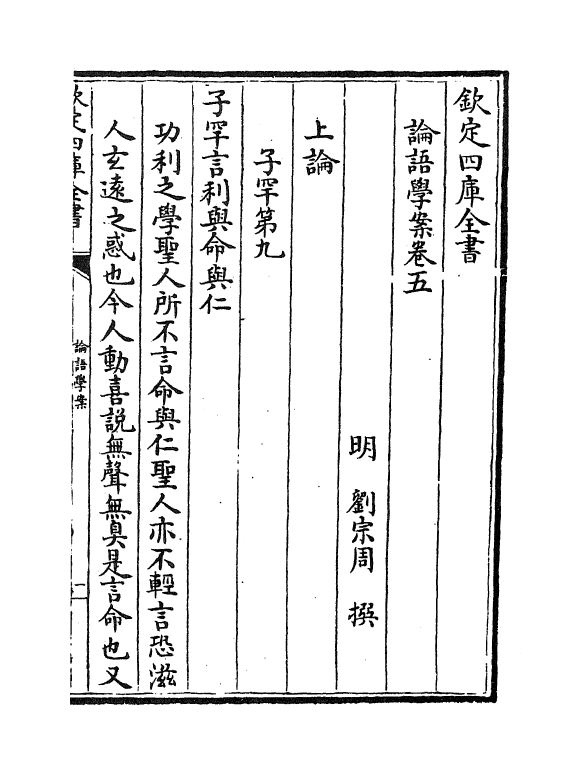 欽定四庫全書
論語學案卷五
明 劉宗周 撰
上論
子罕第九
子罕言利與命與仁
功利之學聖人所不言命與仁聖人亦不輕言恐滋
人玄遠之惑也今人動喜説無聲無臭是言命也又
欽定四庫全書
論語學案